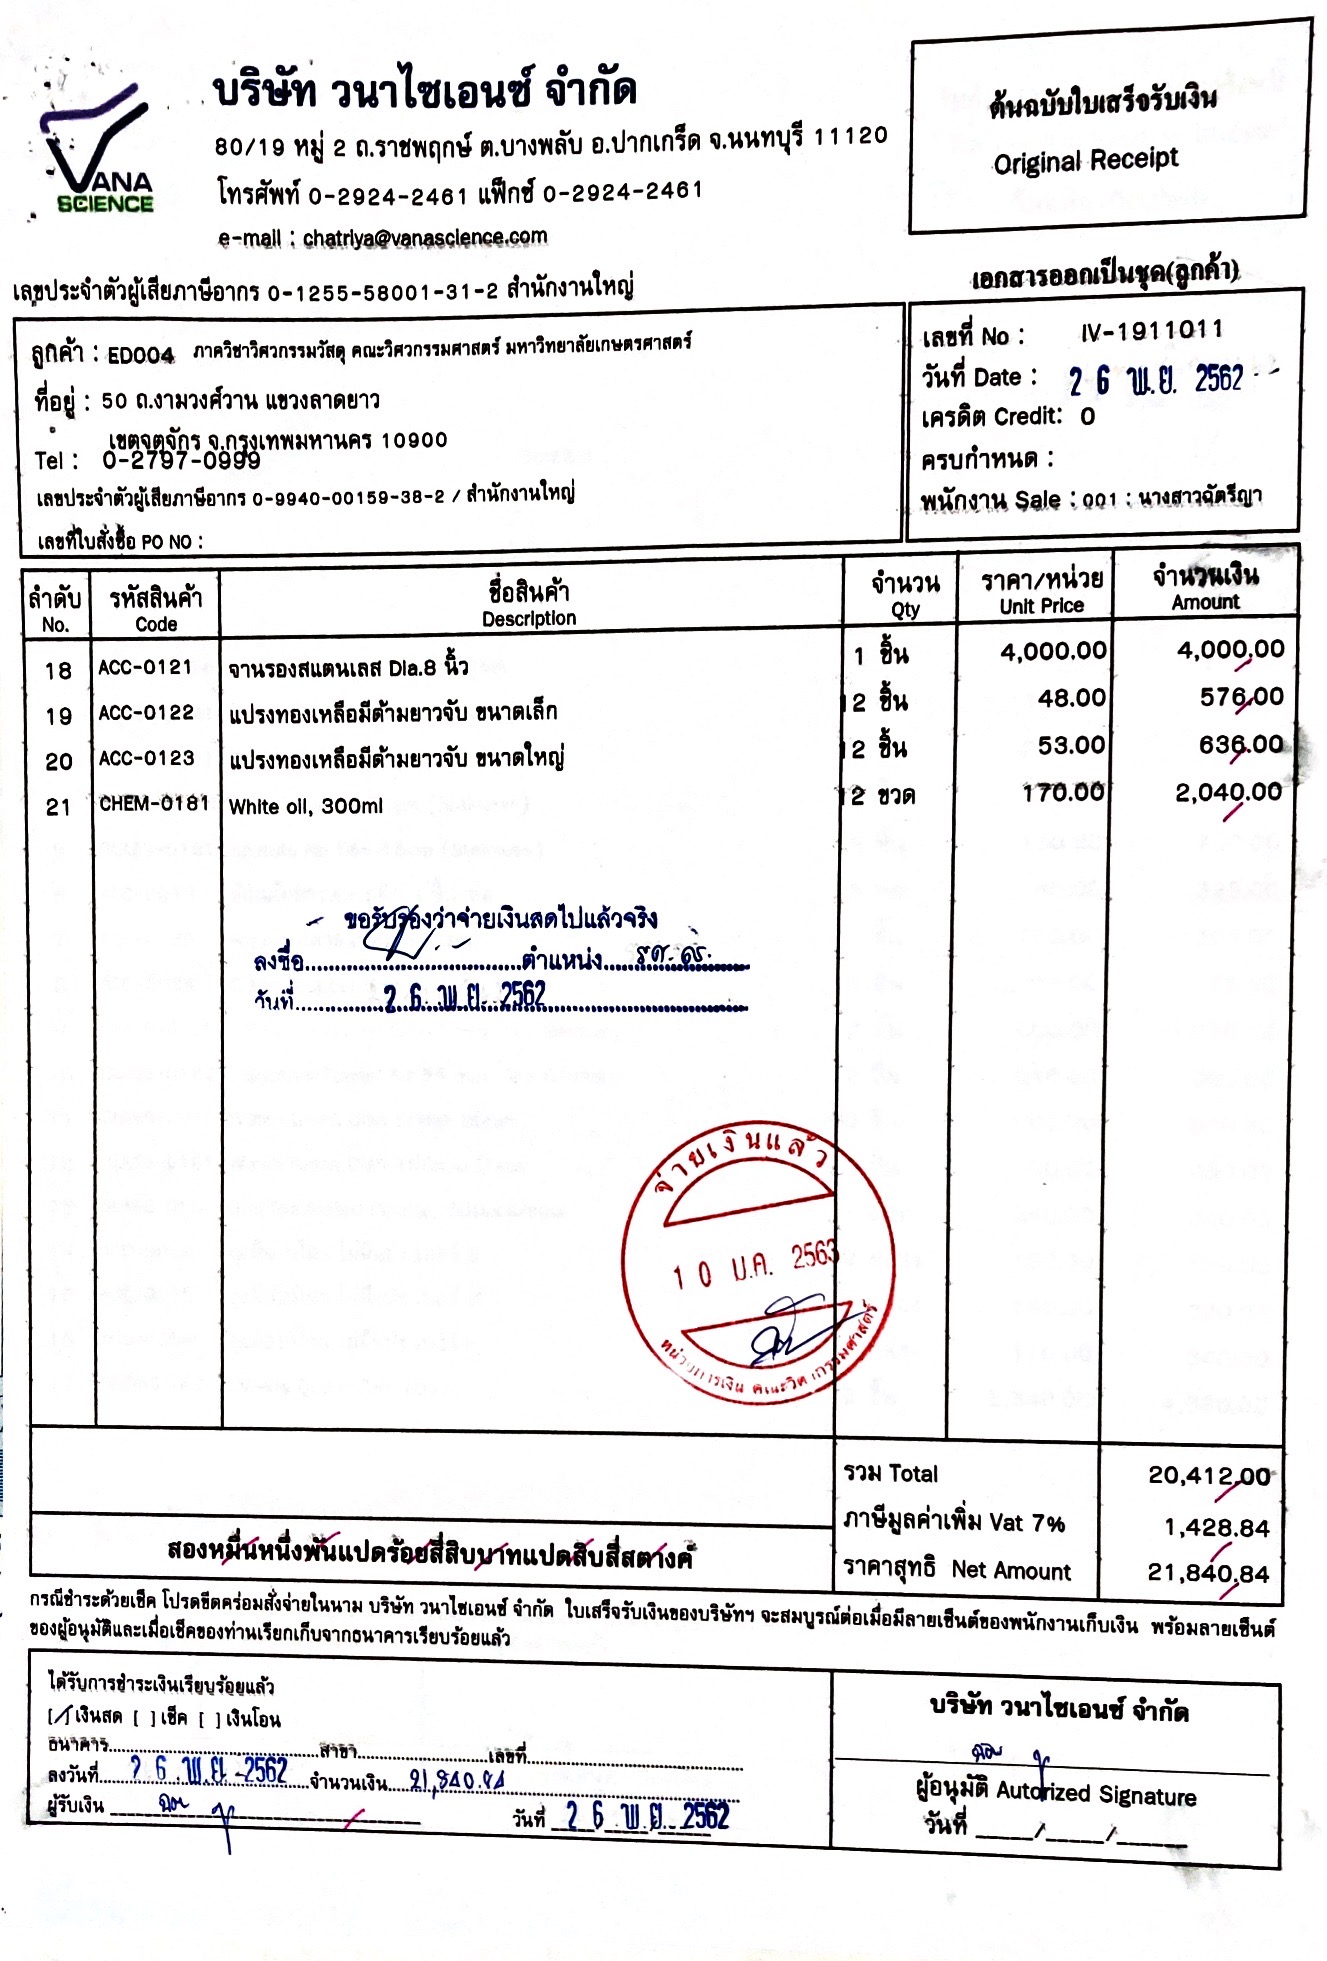 VANA
SCIENCE
บริษัท วนาไซเอนซ์ จำกัด
80/19 หมู่ 2 ถ.ราชพฤกษ์ ต.บางพลับ อ.ปากเกร็ด จ.นนทบุรี 11120
โทรศัพท์ 0-2924-2461 แฟ็กซ์ 0-2924-2461
e-mail : chatriya@vanascience.com
ต้นฉบับใบเสร็จรับเงิน
Original Receipt
เลขประจำตัวผู้เสียภาษีอากร 0-1255-58001-31-2 สำนักงานใหญ่
เอกสารออกเป็นชุด(ลูกค้า)
ลูกค้า : ED004 ภาควิชาวิศวกรรมวัสดุ คณะวิศวกรรมศาสตร์ มหาวิทยาลัยเกษตรศาสตร์
ที่อยู่ : 50 ถ.งามวงศ์วาน แขวงลาดยาว
เขตจตุจักร จ.กรุงเทพมหานคร 10900
Tel : 0-2797-0999
เลขประจำตัวผู้เสียภาษีอากร 0-9940-00159-38-2 / สำนักงานใหญ่
เลขที่ใบสั่งซื้อ PO NO :
เลขที่ No : IV-1911011
วันที่ Date : 26 พ.ย. 2562
เครดิต Credit: 0
ครบกำหนด :
พนักงาน Sale : 001 : นางสาวฉัตรียา
ลำดับ รหัสสินค้า ชื่อสินค้า จำนวน ราคา/หน่วย จำนวนเงิน
No. Code Description Qty Unit Price Amount
18 ACC-0121 จานรองสแตนเลส Dia.8 นิ้ว 1 ชิ้น 4,000.00 4,000.00
19 ACC-0122 แปรงทองเหลือมีด้ามยาวจับ ขนาดเล็ก 12 ชิ้น 48.00 576.00
20 ACC-0123 แปรงทองเหลือมีด้ามยาวจับ ขนาดใหญ่ 12 ชิ้น 53.00 636.00
21 CHEM-0181 White oil, 300ml 12 ขวด 170.00 2,040.00
ขอรับรองว่าจ่ายเงินสดไปแล้วจริง
ลงชื่อ ตำแหน่ง รศ.ดร.
วันที่ 26 พ.ย. 2562
จ่ายเงินแล้ว
10 ม.ค. 2563
หน่วยการเงิน คณะวิศวกรรมศาสตร์
รวม Total 20,412.00
ภาษีมูลค่าเพิ่ม Vat 7% 1,428.84
สองหมื่นหนึ่งพันแปดร้อยสี่สิบบาทแปดสิบสี่สตางค์
ราคาสุทธิ Net Amount 21,840.84
กรณีชำระด้วยเช็ค โปรดขีดคร่อมสั่งจ่ายในนาม บริษัท วนาไซเอนซ์ จำกัด ใบเสร็จรับเงินของบริษัทฯ จะสมบูรณ์ต่อเมื่อมีลายเซ็นต์ของพนักงานเก็บเงิน พร้อมลายเซ็นต์
ของผู้อนุมัติและเมื่อเช็คของท่านเรียกเก็บจากธนาคารเรียบร้อยแล้ว
ได้รับการชำระเงินเรียบร้อยแล้ว
[/] เงินสด [ ] เช็ค [ ] เงินโอน
ธนาคาร สาขา เลขที่
ลงวันที่ 26 พ.ย. 2562 จำนวนเงิน 21,840.84
ผู้รับเงิน วันที่ 26 พ.ย. 2562
บริษัท วนาไซเอนซ์ จำกัด
ผู้อนุมัติ Autorized Signature
วันที่ ____/____/____